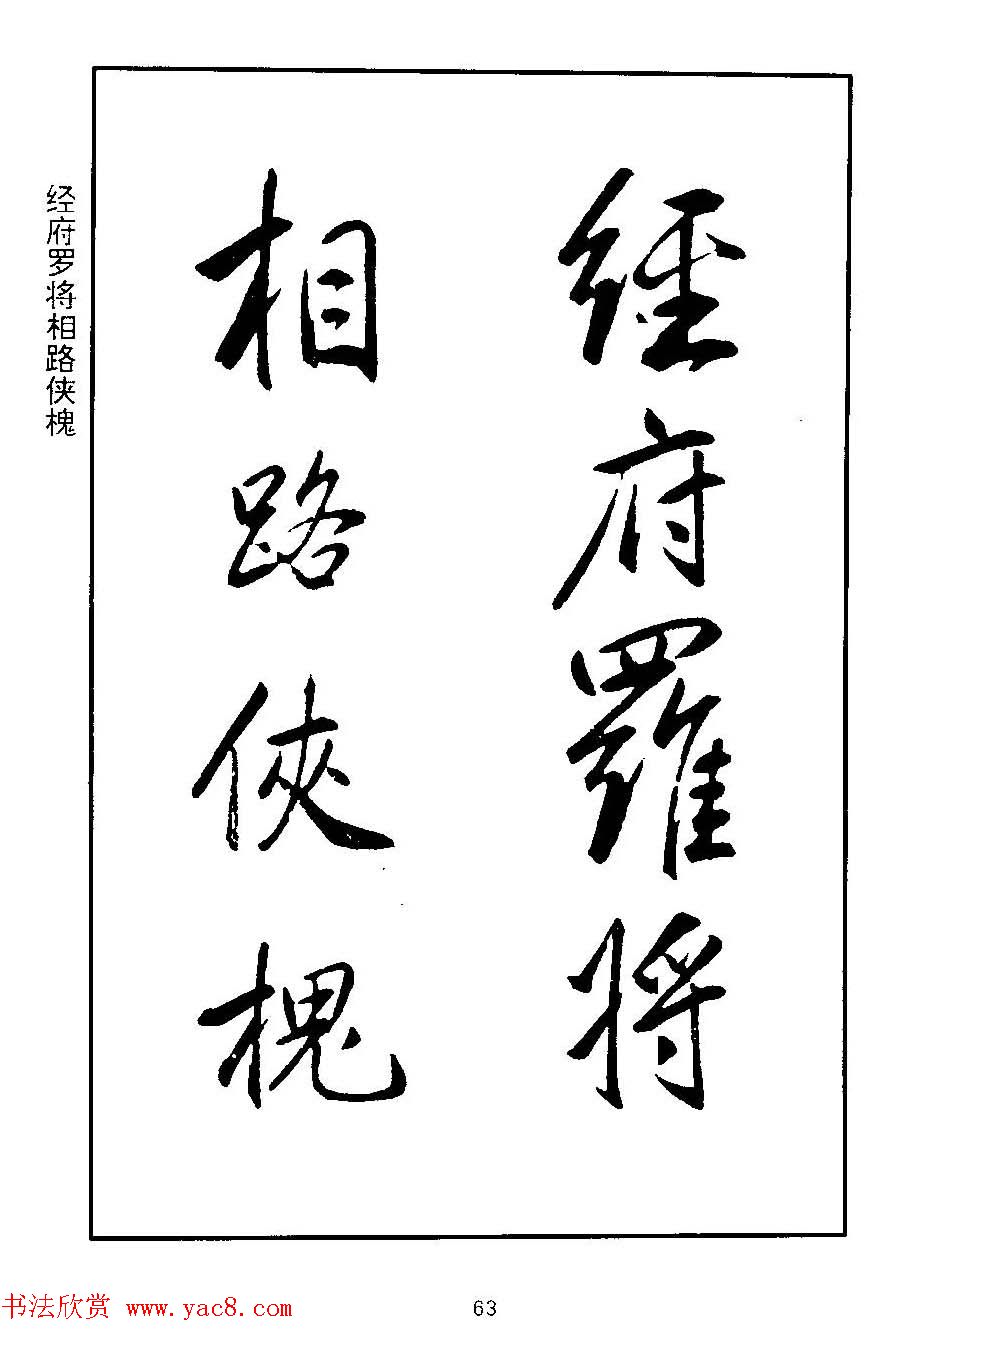 經府羅将
相路俠槐
经府罗将相路侠槐
书法欣赏 www.yac8.com
63